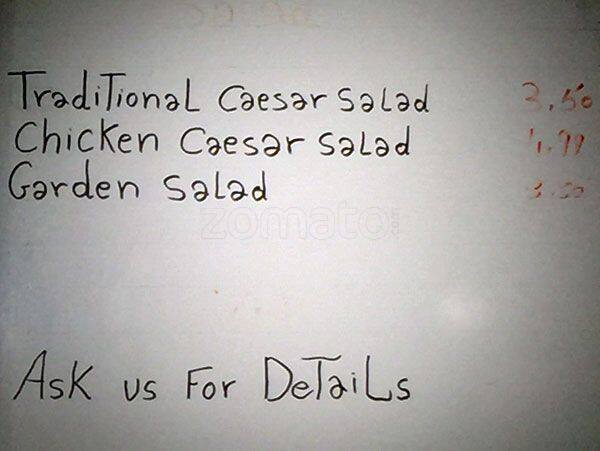 Traditional Caesar Salad 3.50
Chicken Caesar Salad 4.99
Garden Salad 3.50
zomato
Ask us For Details